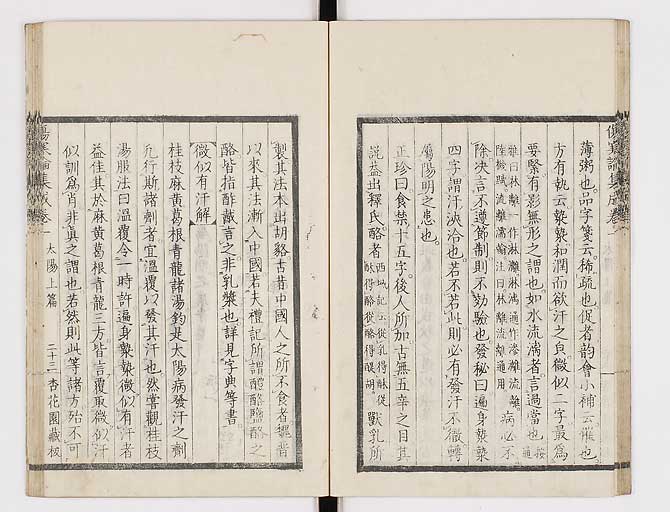 薄粥也品字箋云稀疏也促者韵會小補云催也
方有執云漐漐和潤而欲汗之皃微似二字最為
要緊有影無形之謂也如水流漓者言過當也按
陸機賦流離濡翰注曰林離通用 病必不
除決言不遵節制則不効驗也發秘曰遍身漐漐
四字謂汗浹洽也若不若此則必有發汗不徹轉
屬陽明之患也
正珍曰食禁十五字後人所加古無五辛之目其
説益出釋氏酪者西域記云從乳得酥從酥得酪從酪得醍醐 獸乳所
製其法本出胡貉古昔中國人之所不食者魏晋
以來其法漸入中國若夫禮記所謂醴酪鹽酪之
酪皆指酢酨言之非乳漿也詳見字典等書
微似有汗解
桂枝麻黄葛根青龍諸湯鈞是太陽病發汗之劑
凢行斯諸劑者宜溫覆以發其汗也然嘗觀桂枝
湯服法曰溫覆令一時許遍身漐漐微似有汗者
益佳其於麻黄葛根青龍三方皆言覆取微似汗
似訓為肖非真之謂也若然則此等諸方殆不可
傷寒論集成卷一 太陽上篇 二十三 杏花園藏板